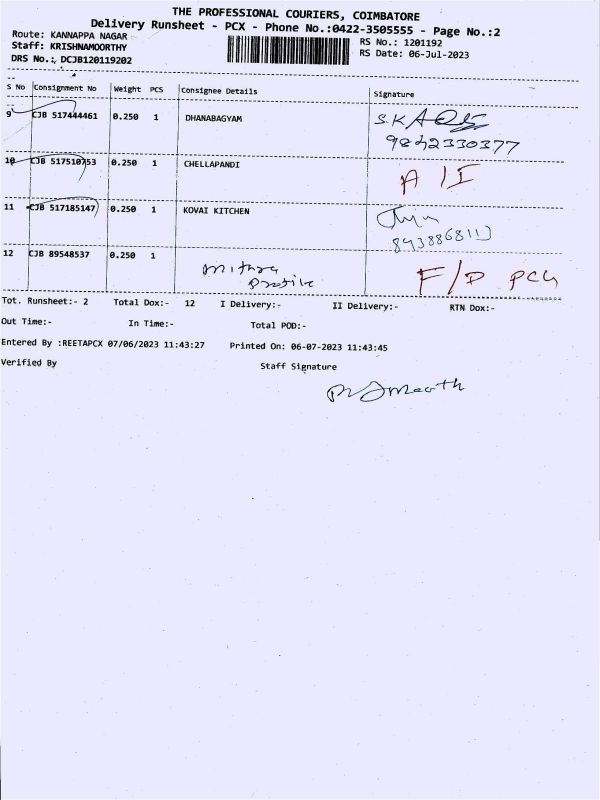 THE PROFESSIONAL COURIERS, COIMBATORE
Delivery Runsheet - PCX - Phone No.:0422-3505555 - Page No.:2
Route: KANNAPPA NAGAR RS No.: 1201192
Staff: KRISHNAMOORTHY RS Date: 06-Jul-2023
DRS No.:, DCJB120119202
S No Consignment No Weight PCS Consignee Details Signature
9 CJB 517444461 0.250 1 DHANABAGYAM S.K
9842330377
10 CJB 517510753 0.250 1 CHELLAPANDI A/I
11 CJB 517185147 0.250 1 KOVAI KITCHEN
12 CJB 89548537 0.250 1 Mithra F/D PCG
Tot. Runsheet:- 2 Total Dox:- 12 I Delivery:- II Delivery:- RTN Dox:-
Out Time:- In Time:- Total POD:-
Entered By :REETAPCX 07/06/2023 11:43:27 Printed On: 06-07-2023 11:43:45
Verified By Staff Signature